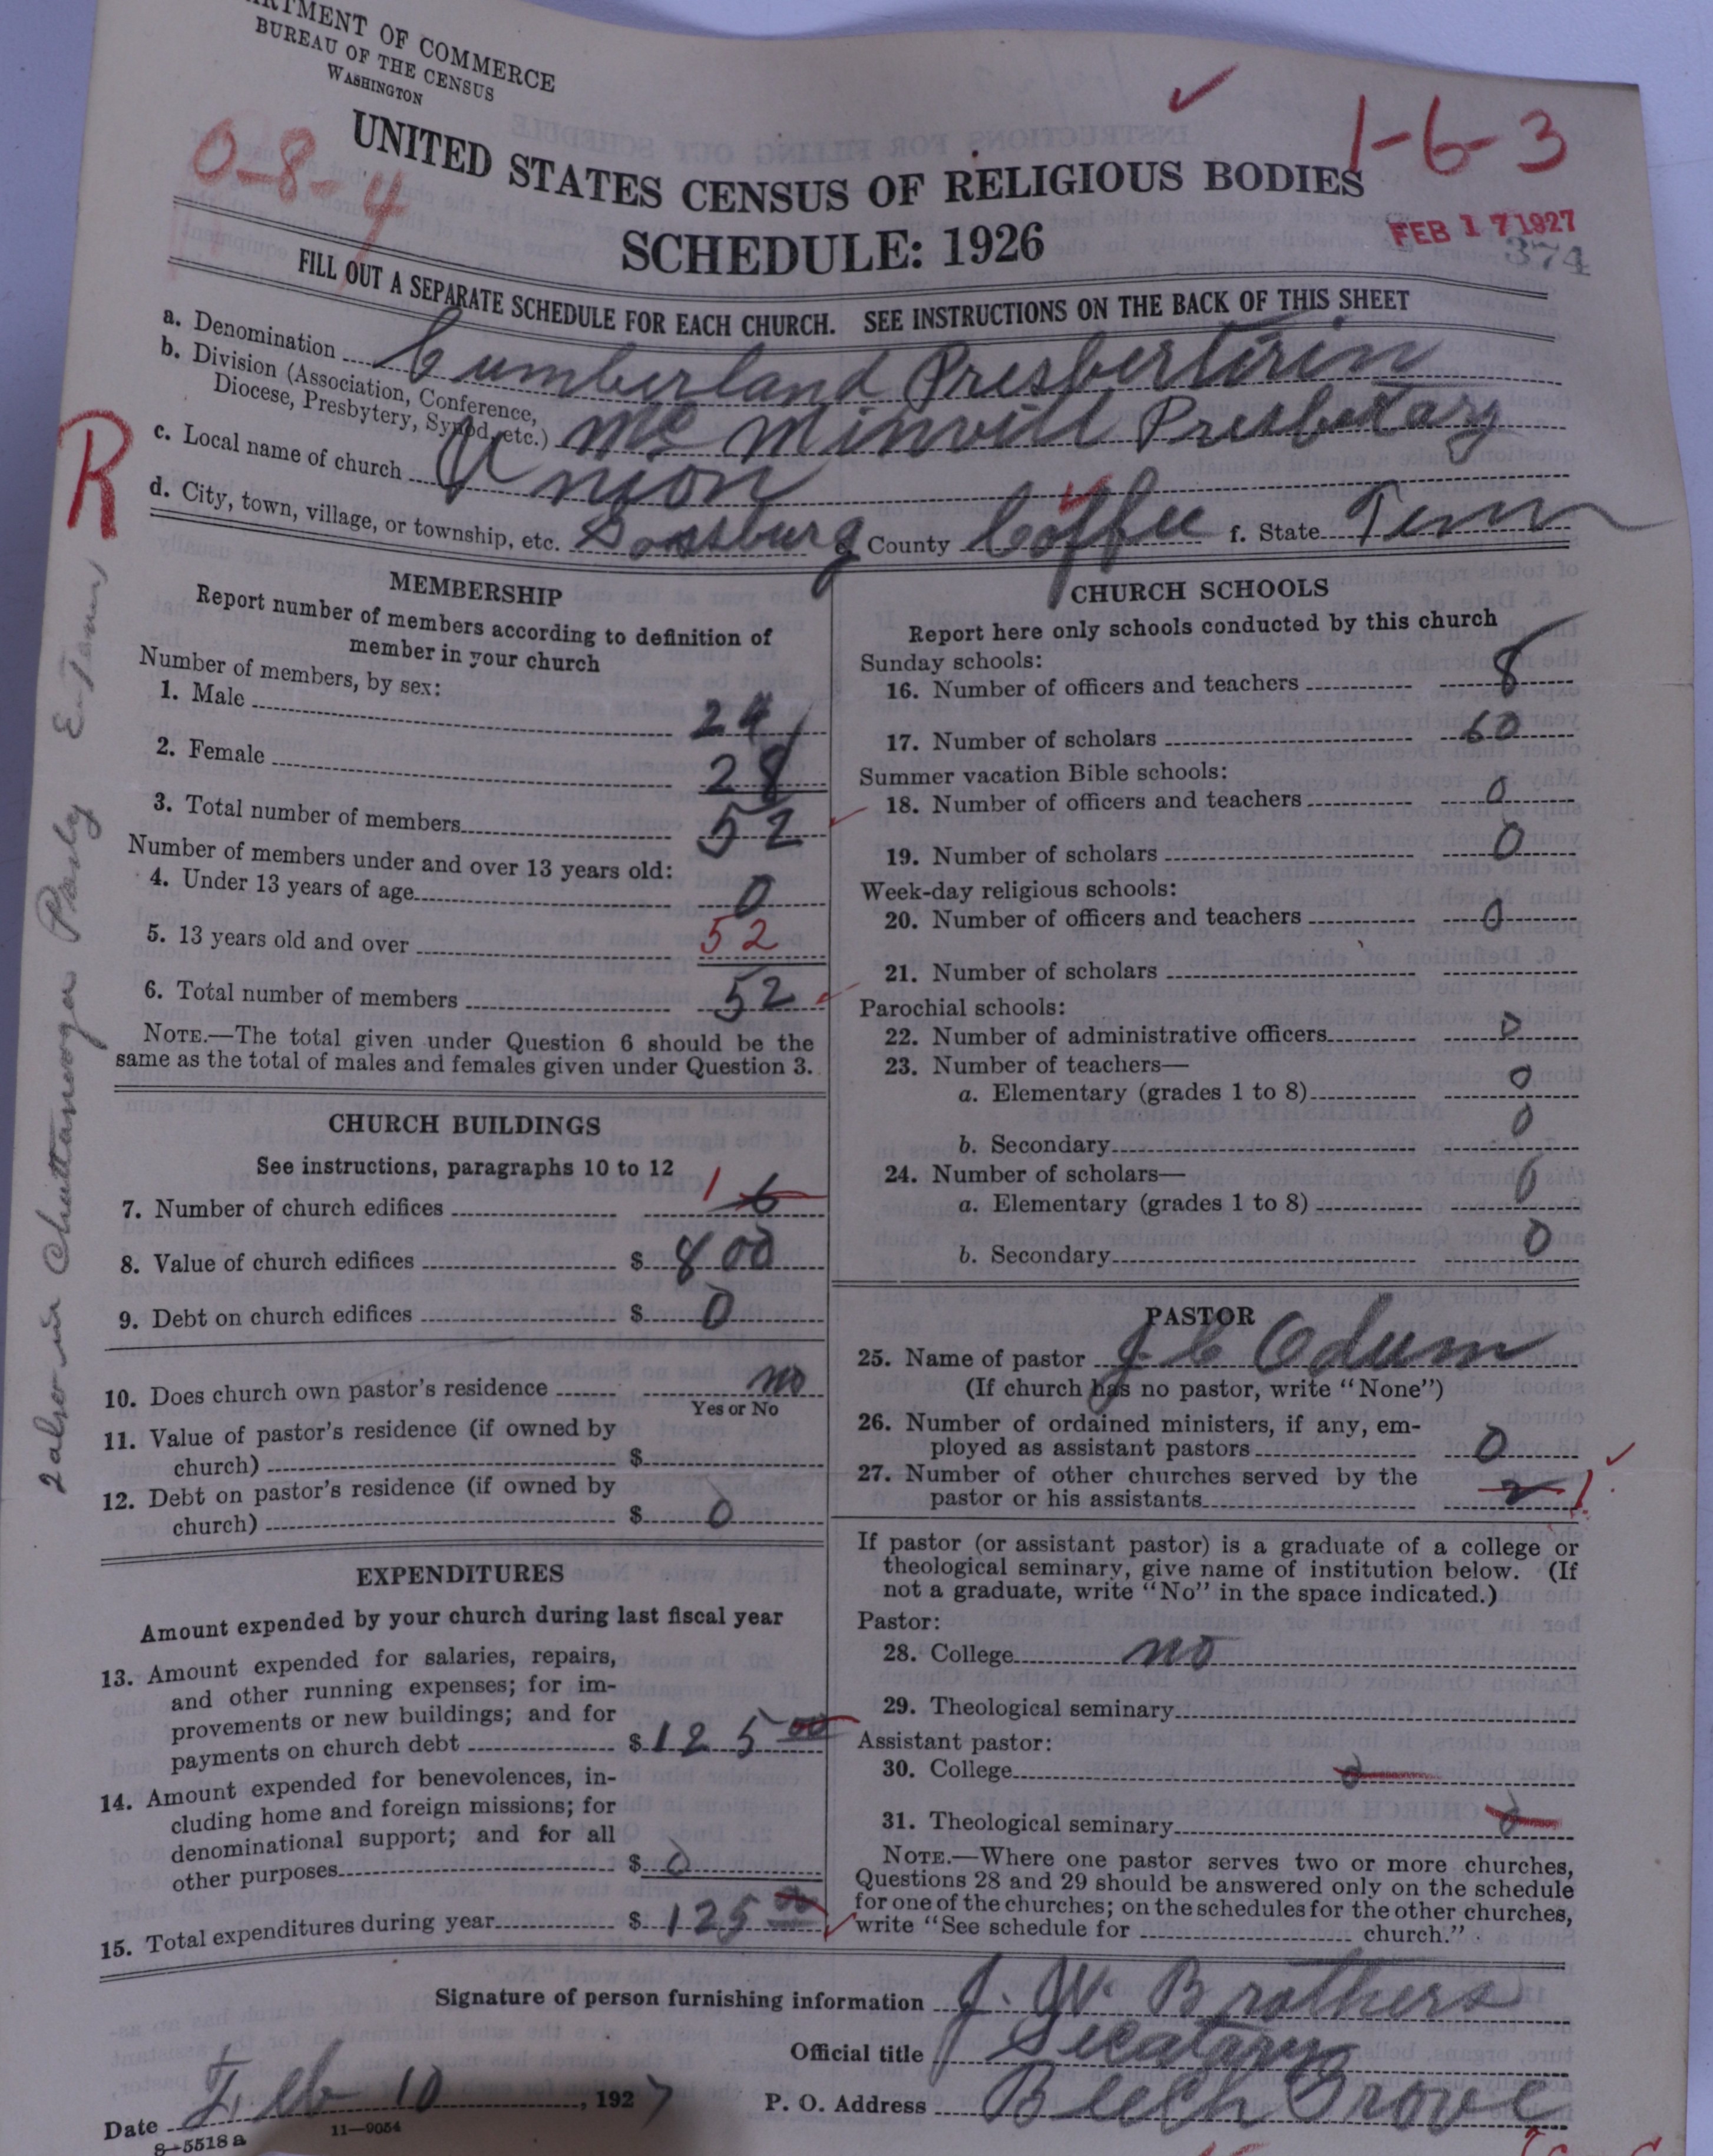 RTMENT OF COMMERCE
BUREAU OF THE CENSUS
WASHINGTON
0-8-4
1-6-3
UNITED STATES CENSUS OF RELIGIOUS BODIES
SCHEDULE: 1926
FEB 17 1927
374
FILL OUT A SEPARATE SCHEDULE FOR EACH CHURCH. SEE INSTRUCTIONS ON THE BACK OF THIS SHEET
a. Denomination Cumberland Presbertirin
b. Division (Association, Conference,
Diocese, Presbytery, Synod, etc.) Mc Minvill Presbetary
c. Local name of church Union
d. City, town, village, or township, etc. County Coffee f. State Tenn
R
2 also in Chattanooga Presby E-Tenn
MEMBERSHIP
Report number of members according to definition of
member in your church
Number of members, by sex:
1. Male 24
2. Female 28
3. Total number of members 52
Number of members under and over 13 years old:
4. Under 13 years of age 0
5. 13 years old and over 52
6. Total number of members 52
NOTE.—The total given under Question 6 should be the
same as the total of males and females given under Question 3.
CHURCH BUILDINGS
See instructions, paragraphs 10 to 12
7. Number of church edifices 1
8. Value of church edifices $ 800
9. Debt on church edifices $ 0
10. Does church own pastor's residence no
Yes or No
11. Value of pastor's residence (if owned by
church) $
12. Debt on pastor's residence (if owned by
church) $ 0
EXPENDITURES
Amount expended by your church during last fiscal year
13. Amount expended for salaries, repairs,
and other running expenses; for im-
provements or new buildings; and for
payments on church debt $ 125 00
14. Amount expended for benevolences, in-
cluding home and foreign missions; for
denominational support; and for all
other purposes $ 0
15. Total expenditures during year $ 125 00
CHURCH SCHOOLS
Report here only schools conducted by this church
Sunday schools:
16. Number of officers and teachers 8
17. Number of scholars 60
Summer vacation Bible schools:
18. Number of officers and teachers 0
19. Number of scholars 0
Week-day religious schools:
20. Number of officers and teachers 0
21. Number of scholars
Parochial schools:
22. Number of administrative officers 0
23. Number of teachers—
a. Elementary (grades 1 to 8) 0
b. Secondary 0
24. Number of scholars—
a. Elementary (grades 1 to 8) 0
b. Secondary 0
PASTOR
25. Name of pastor J. C Odum
(If church has no pastor, write "None")
26. Number of ordained ministers, if any, em-
ployed as assistant pastors 0
27. Number of other churches served by the
pastor or his assistants 2 1
If pastor (or assistant pastor) is a graduate of a college or
theological seminary, give name of institution below. (If
not a graduate, write "No" in the space indicated.)
Pastor:
28. College no
29. Theological seminary
Assistant pastor:
30. College 0
31. Theological seminary 0
NOTE.—Where one pastor serves two or more churches,
Questions 28 and 29 should be answered only on the schedule
for one of the churches; on the schedules for the other churches,
write "See schedule for church."
Signature of person furnishing information J. W. Brothers
Official title Secatary
Date Feb 10, 1927
P. O. Address Beech Grove
8-5518 a
11-9054